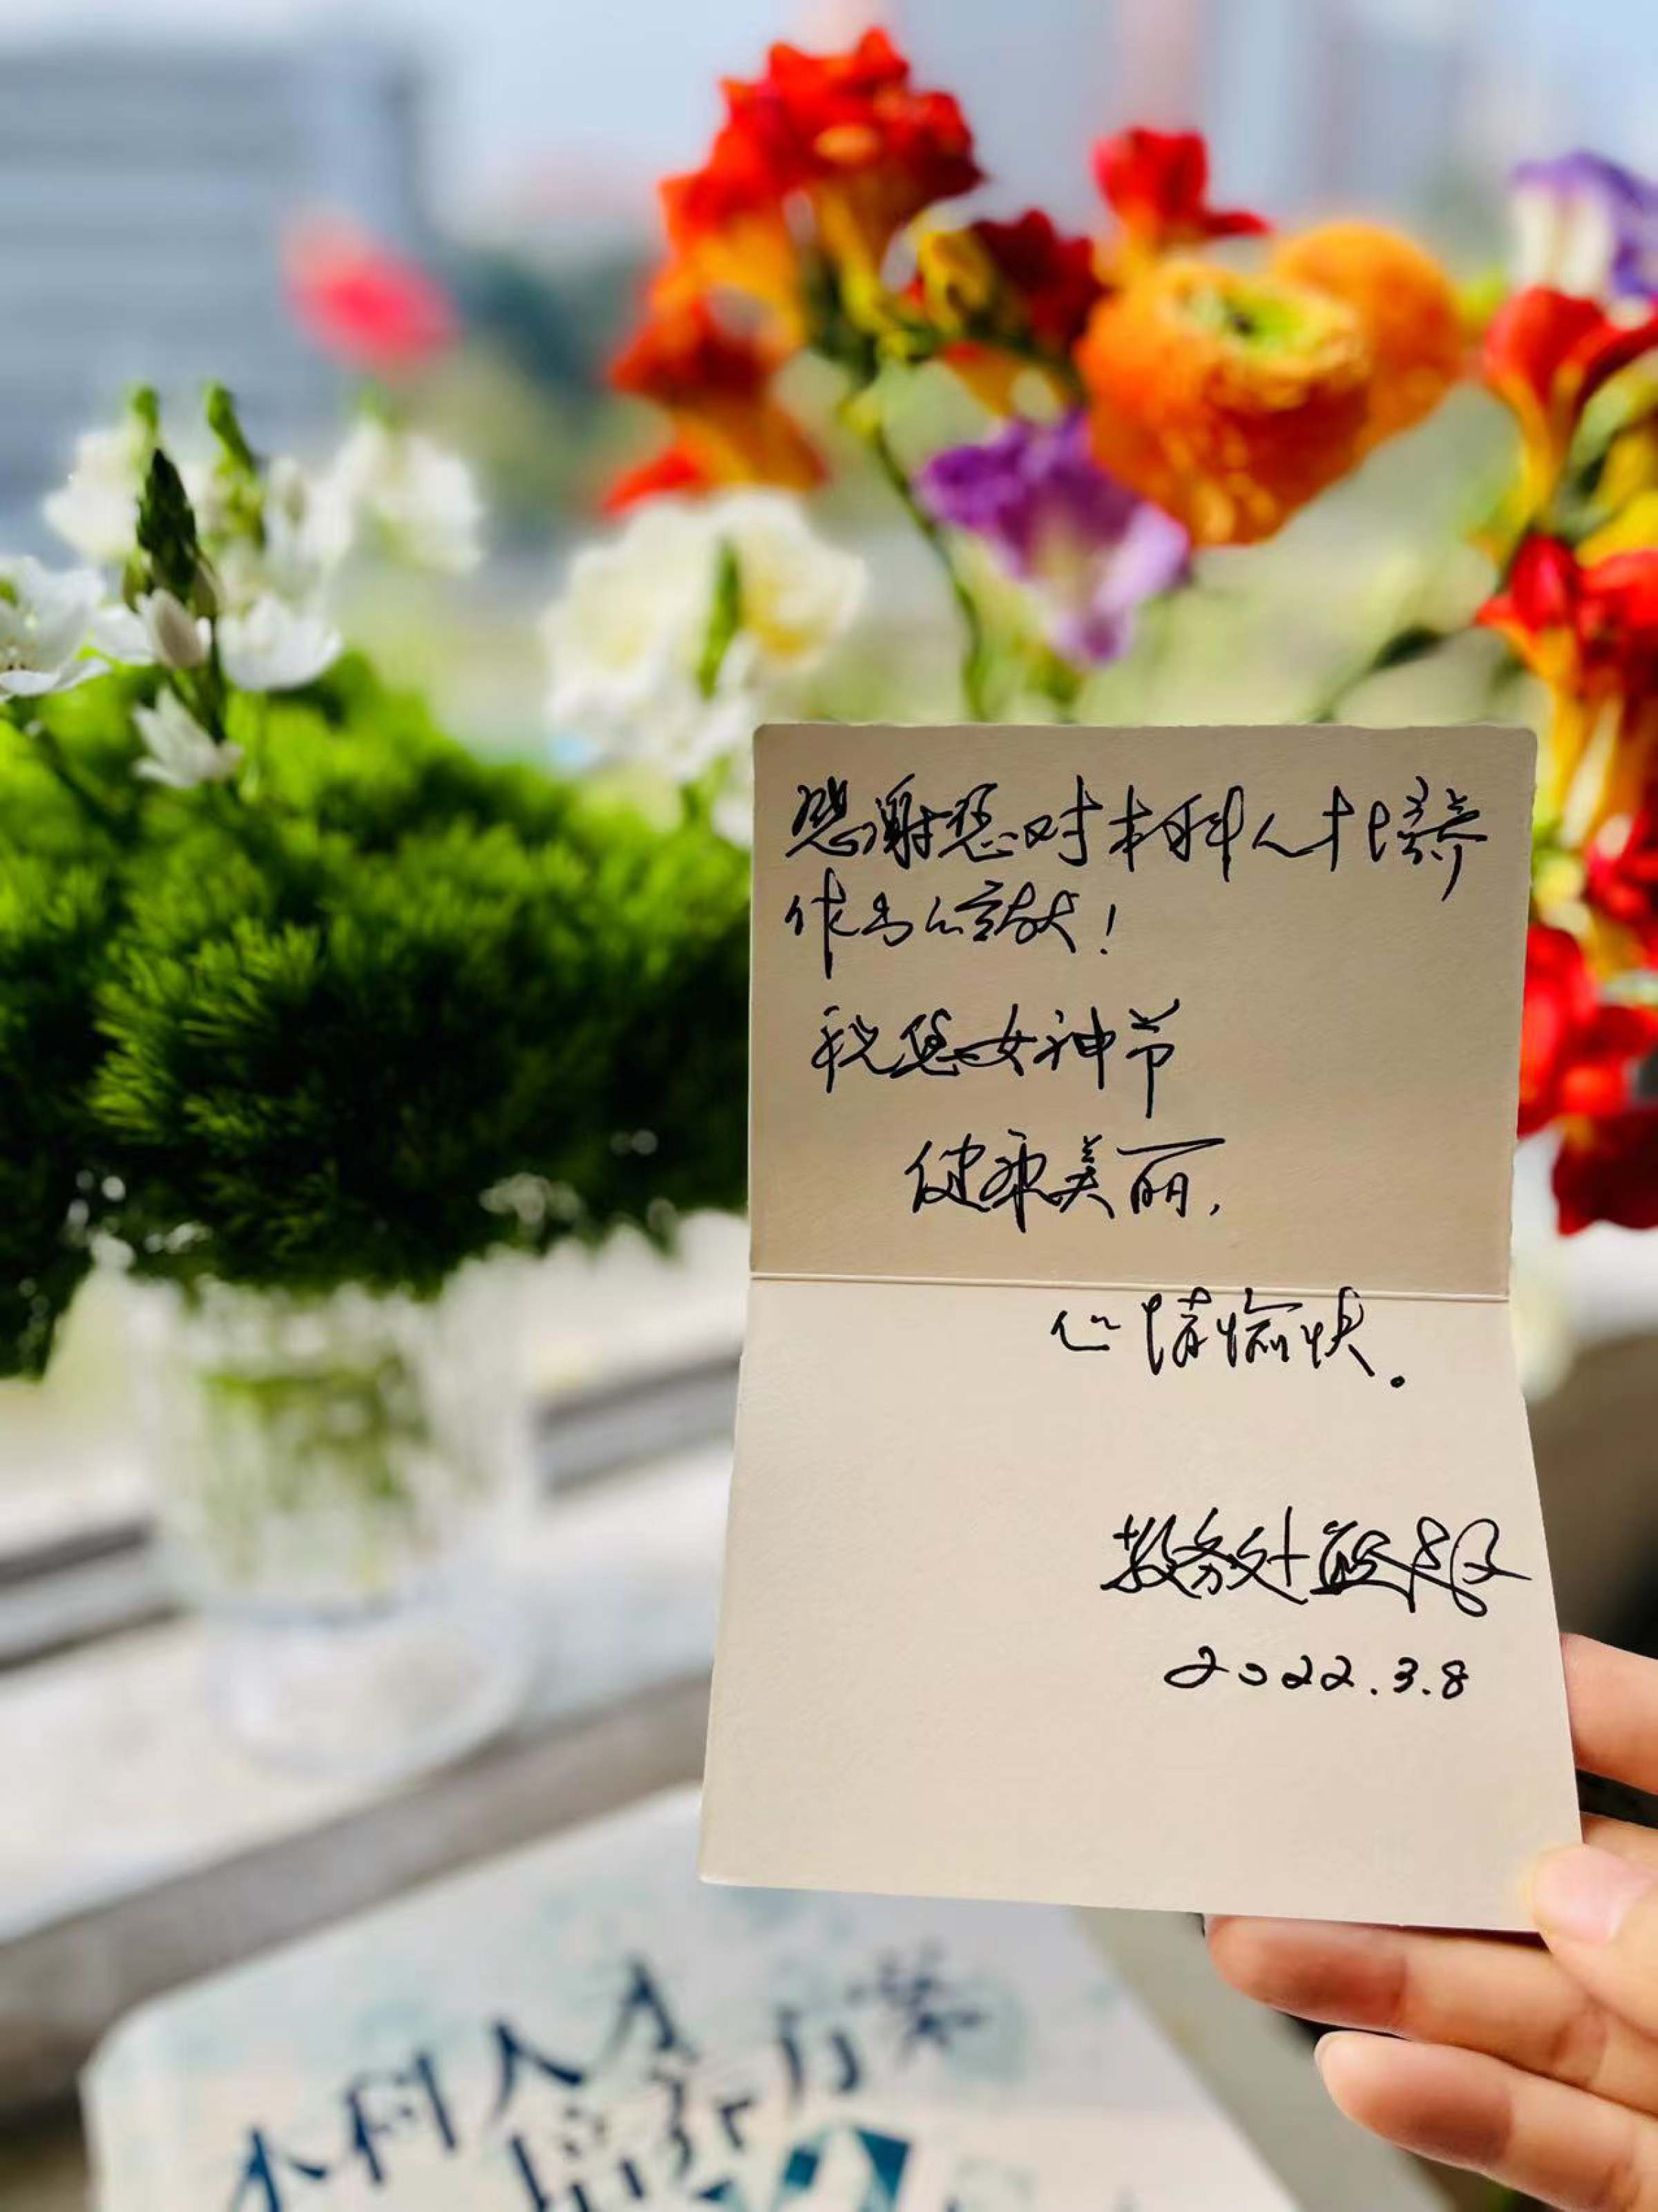 感谢您对本科人才培养
作出的贡献！
祝您女神节
健康美丽，
心情愉快。
教务处
2022.3.8
本科人才
培养方案